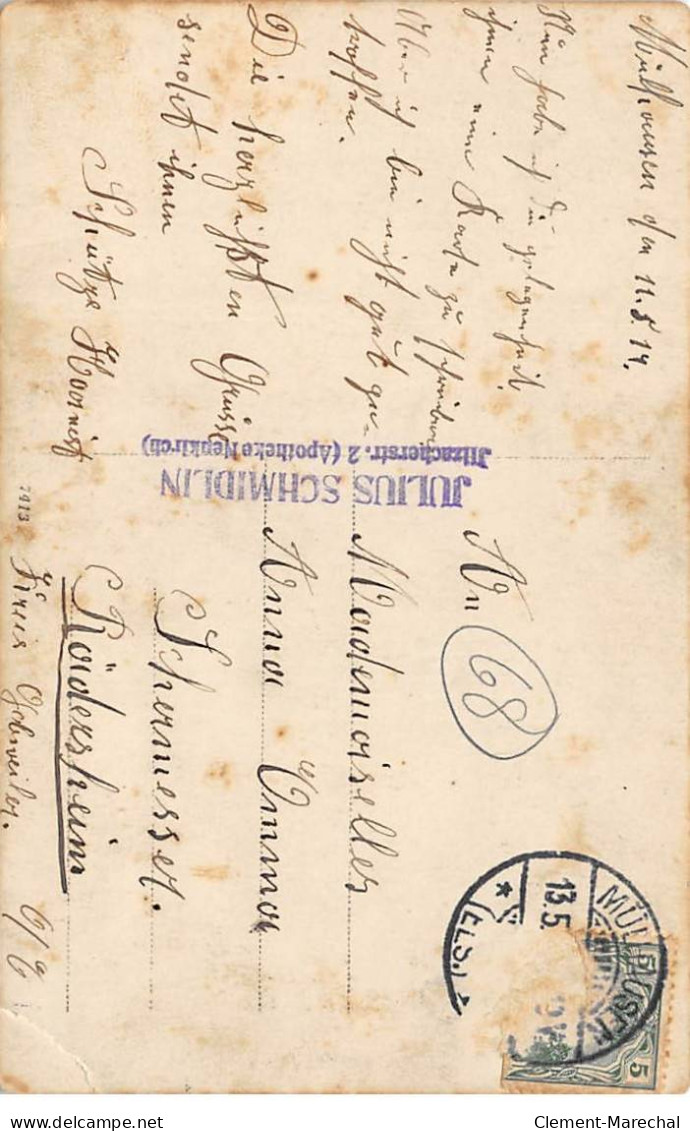 Mülhausen den 11.5.14.
Nun habe ich die gelegenheit
ihnen eine Karte zu schreiben
Aber ich bin nicht gut ge-
troffen.
Die herzlichsten Grüsse
sendet ihnen
Schütze
JULIUS SCHMIDLIN
Illzacherstr. 2 (Apotheke Neukirch)
7413
An
68
Mademoiselles
Anna Emma
Schermesser.
Rädersheim
Kreis Gebweiler. O/E
MÜLHAUSEN
(ELS.)
13.5.
5 5
Clement-Marechal